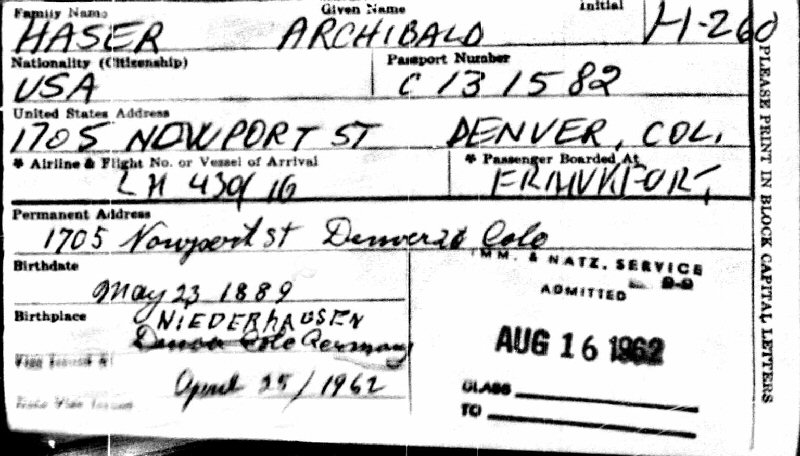 Family Name Given Name Initial
HASER ARCHIBALD H-260
Nationality (Citizenship) Passport Number
USA C 131582
United States Address
1705 NOWPORT ST DENVER, COL.
* Airline & Flight No. or Vessel of Arrival * Passenger Boarded At
LH 430/16
Permanent Address
1705 Nowport St Denver Colo
IMM. & NATZ. SERVICE
Birthdate
ADMITTED
May 23 1889
Birthplace
NIEDERHAUSEN
Denver Colo Germany
AUG 16 1962
Visa Issued At
April 25/1962
CLASS
Date Visa Issued
TO
PLEASE PRINT IN BLOCK CAPITAL LETTERS